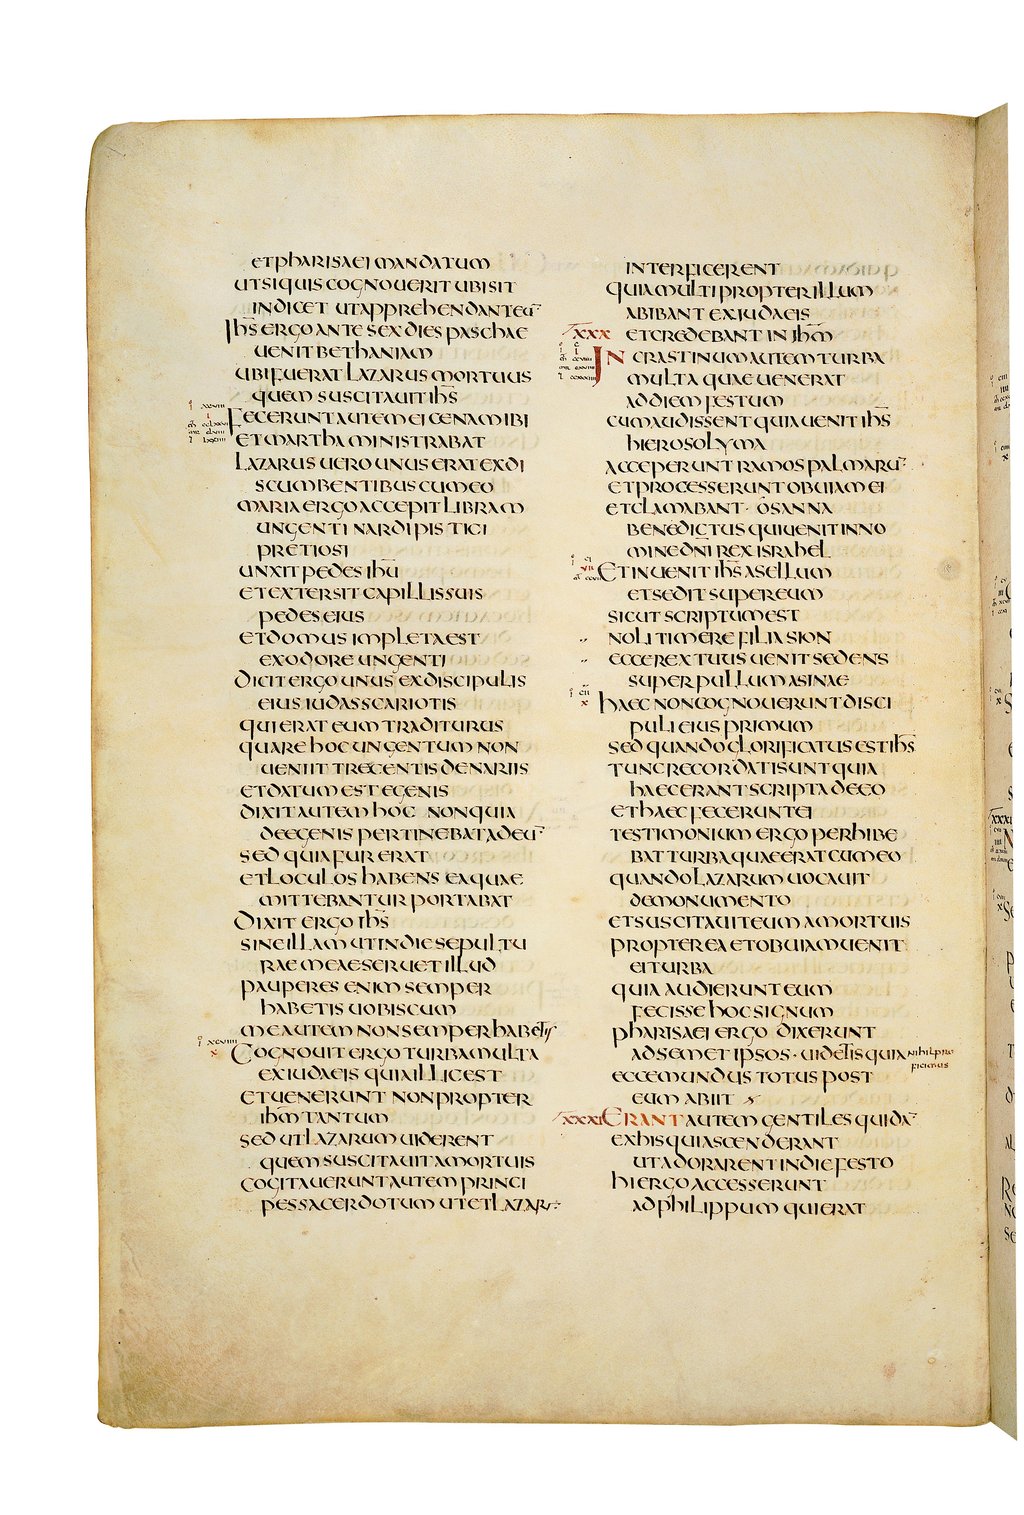 et pharisaei mandatum
ut si quis cognouerit ubi sit
indicet ut apprehendant eū
ihs̄ ergo ante sex dies paschae
uenit bethaniam
ubi fuerat lazarus mortuus
quem suscitauit ihs̄
fecerunt autem ei cenam ibi
et martha ministrabat
lazarus uero unus erat ex di
scumbentibus cum eo
maria ergo accepit libram
ungenti nardi pistici
pretiosi
unxit pedes ihū
et extersit capillis suis
pedes eius
et domus impleta est
ex odore ungenti
dicit ergo unus ex discipulis
eius iudas scariotis
qui erat eum traditurus
quare hoc ungentum non
ueniit trecentis denariis
et datum est egenis
dixit autem hoc non quia
de egenis pertinebat ad eū
sed quia fur erat
et loculos habens ea quae
mittebantur portabat
dixit ergo ihs̄
sine illam ut in die sepultu
rae meae seruet illud
pauperes enim semper
habetis uobiscum
me autem non semper habetis
cognouit ergo turba multa
ex iudaeis quia illic est
et uenerunt non propter
ihm̄ tantum
sed ut lazarum uiderent
quem suscitauit a mortuis
cogitauerunt autem princi
pes sacerdotum ut et lazarū
interficerent
quia multi propter illum
abibant ex iudaeis
xxx et credebant in ihm̄
In crastinum autem turba
multa quae uenerat
ad diem festum
cum audissent quia uenit ihs̄
hierosolyma
acceperunt ramos palmarū
et processerunt obuiam ei
et clamabant · osanna
benedictus qui uenit in no
mine dn̄i rex israhel
et inuenit ihs̄ asellum
et sedit super eum
sicut scriptum est
noli timere filia sion
ecce rex tuus uenit sedens
super pullum asinae
haec non cognouerunt disci
puli eius primum
sed quando glorificatus est ihs̄
tunc recordati sunt quia
haec erant scripta de eo
et haec fecerunt ei
testimonium ergo perhibe
bat turba quae erat cum eo
quando lazarum uocauit
de monumento
et suscitauit eum a mortuis
propterea et obuiam uenit
ei turba
quia audierunt eum
fecisse hoc signum
pharisaei ergo dixerunt
ad semet ipsos · uidetis quia nihil pro
ficimus
ecce mundus totus post
eum abiit
xxxi erant autem gentiles quidā
ex his qui ascenderant
ut adorarent in die festo
hi ergo accesserunt
ad philippum qui erat